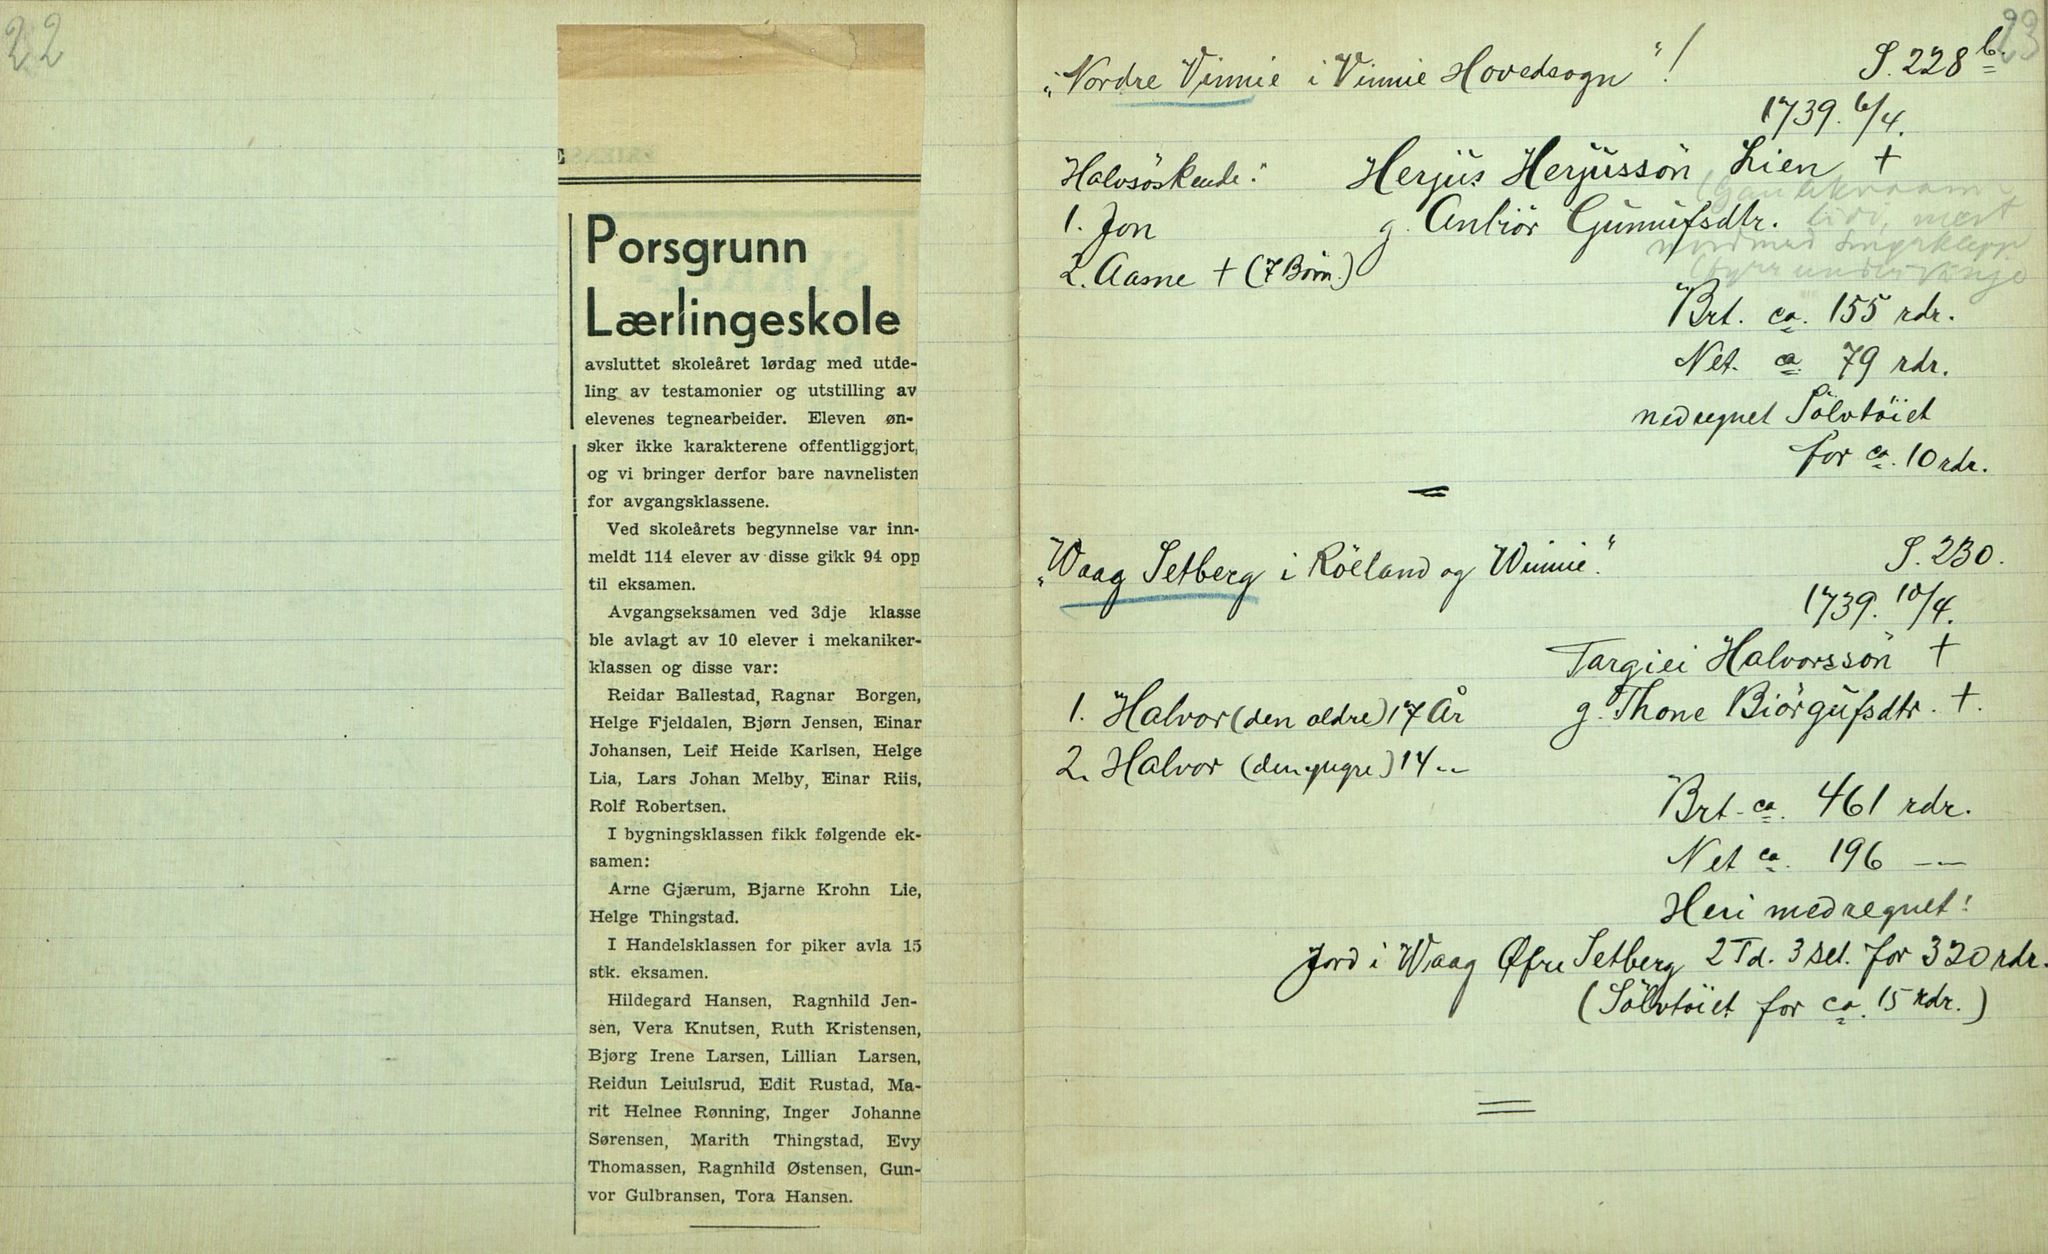 22
Porsgrunn
Lærlingeskole
avsluttet skoleåret lørdag med utde-
ling av testamonier og utstilling av
elevenes tegnearbeider. Eleven øn-
sker ikke karakterene offentliggjort,
og vi bringer derfor bare navnelisten
for avgangsklassene.
Ved skoleårets begynnelse var inn-
meldt 114 elever av disse gikk 94 opp
til eksamen.
Avgangseksamen ved 3dje klasse
ble avlagt av 10 elever i mekaniker-
klassen og disse var:
Reidar Ballestad, Ragnar Borgen,
Helge Fjeldalen, Bjørn Jensen, Einar
Johansen, Leif Heide Karlsen, Helge
Lia, Lars Johan Melby, Einar Riis,
Rolf Robertsen.
I bygningsklassen fikk følgende ek-
samen:
Arne Gjærum, Bjarne Krohn Lie,
Helge Thingstad.
I Handelsklassen for piker avla 15
stk. eksamen.
Hildegard Hansen, Ragnhild Jen-
sen, Vera Knutsen, Ruth Kristensen,
Bjørg Irene Larsen, Lillian Larsen,
Reidun Leiulsrud, Edit Rustad, Ma-
rit Helnee Rønning, Inger Johanne
Sørensen, Marith Thingstad, Evy
Thomassen, Ragnhild Østensen, Gun-
vor Gulbransen, Tora Hansen.
23
"Nordre Vinnie i Vinnie Hovedsogn"! S. 228 b.
1739. 6/4.
Halvsöskende: Herjus Herjussön Lien +
1. Jon g. Anbiör Gunnufsdtr.
2. Aasne + (7 Börn.)
Brt. ca. 155 rdr.
Net. ca. 79 rdr.
medregnet Sölvtöiet
for ca. 10 rdr.
"Waag Setberg i Röeland og Winnie". S. 230.
1739. 10/4.
Targiei Halvorssön +
1. Halvor (den ældre) 17 År g. Thone Biörgufsdtr. +.
2. Halvor (den yngre) 14 --
Brt. ca. 461 rdr.
Net ca. 196 --
Heri medregnet:
Jord i Waag Øfre Setberg 2 Td. 3 set. for 320 rdr.
(Sölvtöiet for ca. 15 rdr.)